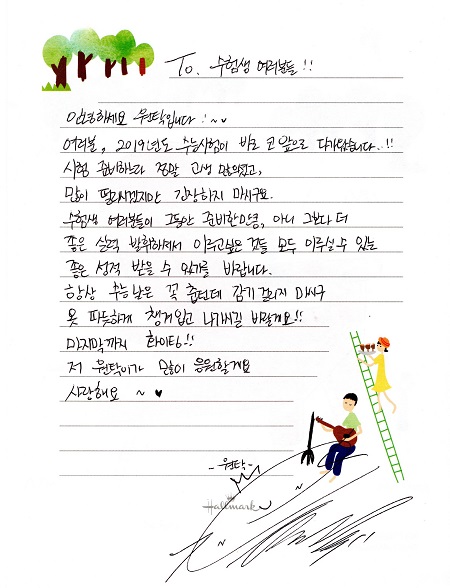 To. 수험생 여러분들 !!
안녕하세요 원탁입니다 !~
여러분, 2019년도 수능시험이 바로 코 앞으로 다가왔습니다..!!
시험 준비하느라 정말 고생 많으셨고,
많이 떨리시겠지만 긴장하지 마시구요.
수험생 여러분들이 그동안 준비한만큼, 아니 그보다 더
좋은 실력 발휘하셔서 이루고싶은 것들 모두 이루실 수 있는
좋은 성적 받을 수 있기를 바랍니다.
항상 수능날은 꼭 춥던데 감기 걸리지 마시구
옷 따듯하게 챙겨입고 나가시길 바랄게요!!
마지막까지 화이팅!!
저 원탁이가 많이 응원할게요
사랑해요 ~ ♥
-원탁-
Hallmark